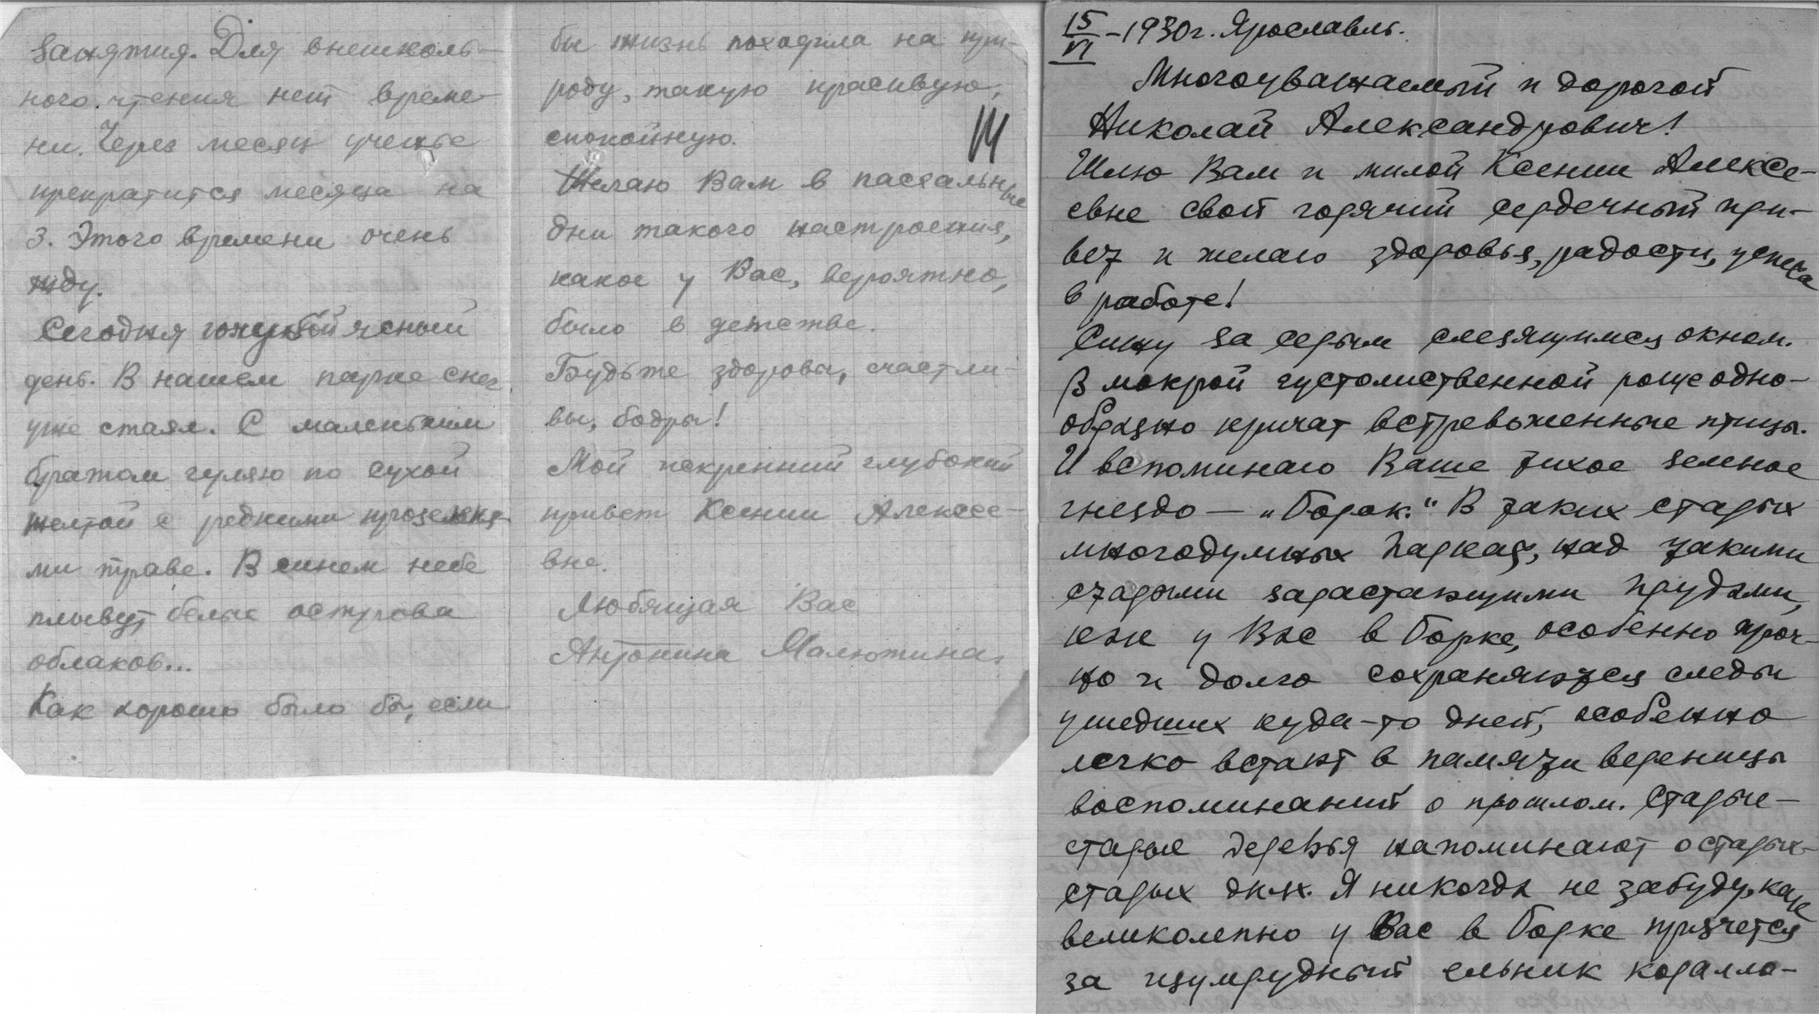 занятия. Для внешколь-
ного чтения нет време-
ни. Через месяц ученье
прекратится месяца на
3. Этого времени очень
жду.
Сегодня голубой ясный
день. В нашем парке снег
уже стаял. С маленьким
братом гуляю по сухой
желтой с редкими прозеленя-
ми траве. В синем небе
плывут белые острова
облаков...
Как хорошо было бы, если
бы жизнь походила на при-
роду, такую красивую,
спокойную.
14
Желаю Вам в пасхальные
дни такого настроения,
какое у Вас, вероятно,
было в детстве.
Будьте здоровы, счастли-
вы, бодры!
Мой искренний глубокий
привет Ксении Алексее-
вне.
Любящая Вас
Антонина Малютина.
15/VI - 1930 г. Ярославль.
Многоуважаемый и дорогой
Николай Александрович!
Шлю Вам и милой Ксении Алексе-
евне свой горячий сердечный при-
вет и желаю здоровья, радости, успеха
в работе!
Сижу за серым слезящимся окном.
В мокрой густолиственной роще одно-
образно кричат встревоженные птицы.
И вспоминаю Ваше тихое зеленое
гнездо — „Борок." В таких старых
многодумных парках, над такими
старыми зарастающими прудами,
как у Вас в Борке, особенно проч-
но и долго сохраняются следы
ушедших куда-то дней, особенно
легко встают в памяти вереницы
воспоминаний о прошлом. Старые-
старые деревья напоминают о старых-
старых днях. Я никогда не забуду, как
великолепно у Вас в Борке прячется
за изумрудный ельник коралло-